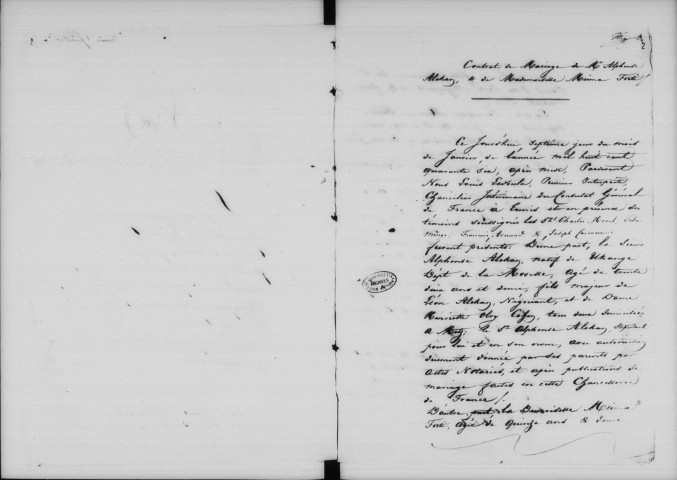 Contrat de Mariage de Mr Alphonse
Alskan, & de Mademoiselle Minna Forti /
Ce Jourd'hui Septième jour du mois
de Janvier, de l'année mil huit cent
quarante Six, après midi, Pardevant
Nous Louis Premier Interprète
Chancelier Intérimaire du Consulat Général
de France à Tunis et en présence des
témoins Soussignés les Srs Charles
François Arnaud & Joseph
furent présents. D'une part, le Sieur
Alphonse Alskan, natif de Uckange
Dépt de la Moselle, agé de trente
deux ans et demi, fils majeur de
Léon Alskan, Négociant, et de Dame
Henriette tous deux domiciliés
A Metz, le Sr Alphonse Alskan, Stipulant
pour lui et en son nom, avec autorisation
duement donnée par ses parents par
actes Notariés, et après publications de
mariage faites en cette Chancellerie
de France /.
D'autre part la Demoiselle Minna
Forti, agée de quinze ans & demi